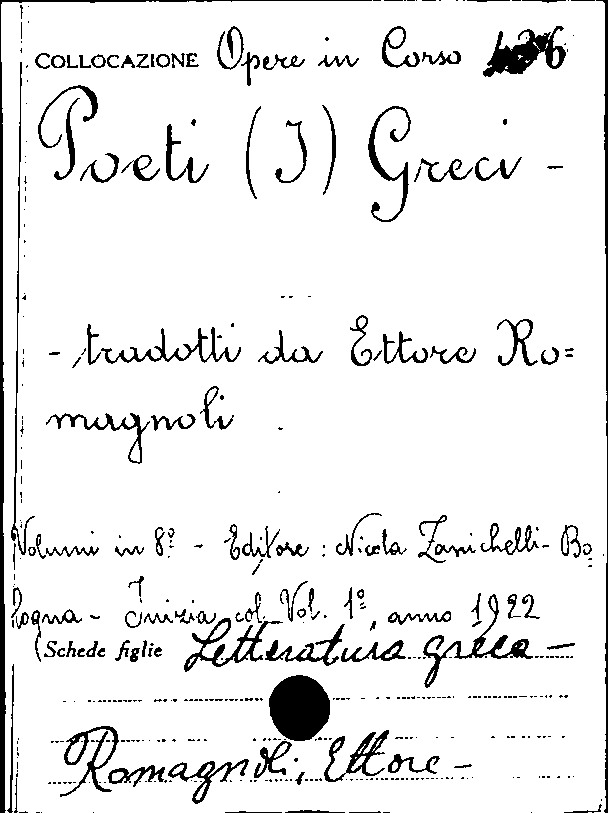 COLLOCAZIONE Opere in Corso
Poeti (I) Greci -
- tradotti da Ettore Ro=
magnoli
Volumi in 8º - Editore: Nicola Zanichelli - Bo
logna - Inizia col Vol. 1º, anno 1922
(Schede figlie Letteratura greca -
Romagnoli, Ettore -